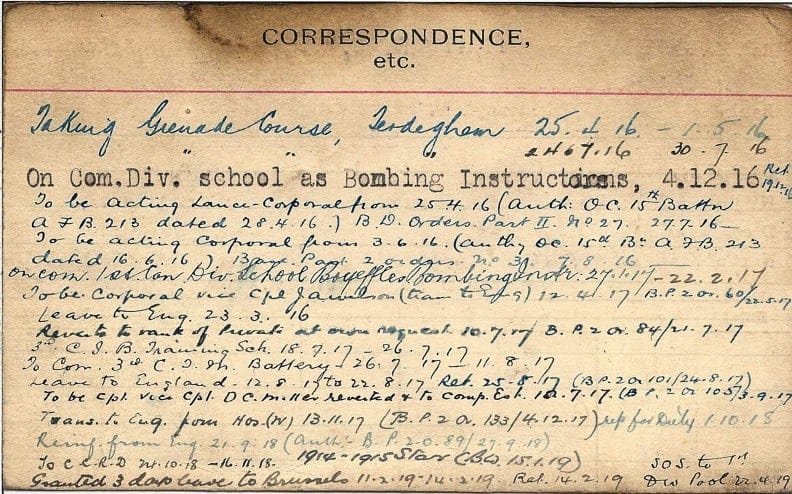 CORRESPONDENCE,
etc.
Taking Grenade Course, Terdeghem 25.4.16. - 1.5.16
" " " 24.7.16 30.7.16
On Com.Div. school as Bombing Instructors, 4.12.16. Ret
To be acting Lance-Corporal from 25.4.16 (Auth: O.C. 15th Battn
A F B. 213 dated 28.4.16.) B.D. Orders. Part II. No 27. 27.7.16-
To be acting Corporal from 3.6.16. (Auth OC. 15th Bn A.F.B. 213
dated 16.6.16.) Base Part 2 orders No 31. 7.8.16
on com. 1st Can Div. School Bouffles bombing instr. 27.1.17 - 22.2.17
To be Corporal vice Cpl Jamieson (trans to Eng) 12.4.17 B.P.2 Or. 60/22.5.17
Leave to Eng. 23.3.16
Reverts to rank of Private at own request. 10.7.17 B.P.2 Or. 84/21.7.17
3rd C.I.B. Training Sch. 18.7.17 - 26.7.17
To Com. 3rd C. Battery - 26.7.17 - 11.8.17
Leave to England - 12.8.17 to 22.8.17 Ret. 25.8.17 (B.P.2 Or 101/24.8.17)
To be Cpl. vice Cpl. D.C. Miller reverted & to Comp. Est. 10.7.17. (B.P.2 Or 105/3.9.17
Trans. to Eng. from Hos. (W) 13.11.17 (B.P.2 Or. 133/4.12.17) rep for Duty 1.10.18
Reinf. from Eng. 21.9.18 (Auth:- B.P.2.O. 89/27.9.18)
To C.C.R.D 24.10.18 - 16.11.18. 1914-1915 Star (BW. 15.1.19)
Granted 3 days leave to Brussels 11.2.19-14.2.19 Ret. 14.2.19
S.O.S. to
Dis Pool 22.4.19